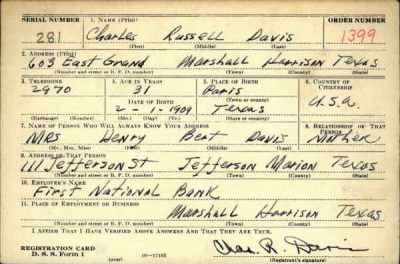 SERIAL NUMBER 1. NAME (Print) ORDER NUMBER
281 Charles Russell Davis 1399
(First) (Middle) (Last)
2. ADDRESS (Print)
603 East Grand Marshall Harrison Texas
(Number and street or R. F. D. number) (Town) (County) (State)
3. TELEPHONE 4. AGE IN YEARS 5. PLACE OF BIRTH 6. COUNTRY OF CITIZENSHIP
2970 31 Paris
DATE OF BIRTH (Town or county)
2-1-1909 Texas U.S.A.
(Exchange) (Number) (Mo.) (Day) (Yr.) (State or country)
7. NAME OF PERSON WHO WILL ALWAYS KNOW YOUR ADDRESS 8. RELATIONSHIP OF THAT PERSON
Mrs Henry Davis Mother
(Mr., Mrs., Miss) (First) (Middle) (Last)
9. ADDRESS OF THAT PERSON
111 Jefferson St Jefferson Marion Texas
(Number and street or R. F. D. number) (Town) (County) (State)
10. EMPLOYER'S NAME
First National Bank
11. PLACE OF EMPLOYMENT OR BUSINESS
Marshall Harrison Texas
(Number and street or R. F. D. number) (Town) (County) (State)
I AFFIRM THAT I HAVE VERIFIED ABOVE ANSWERS AND THAT THEY ARE TRUE.
REGISTRATION CARD Chas. R. Davis
D. S. S. Form 1 (over) 16-17105 (Registrant's signature)